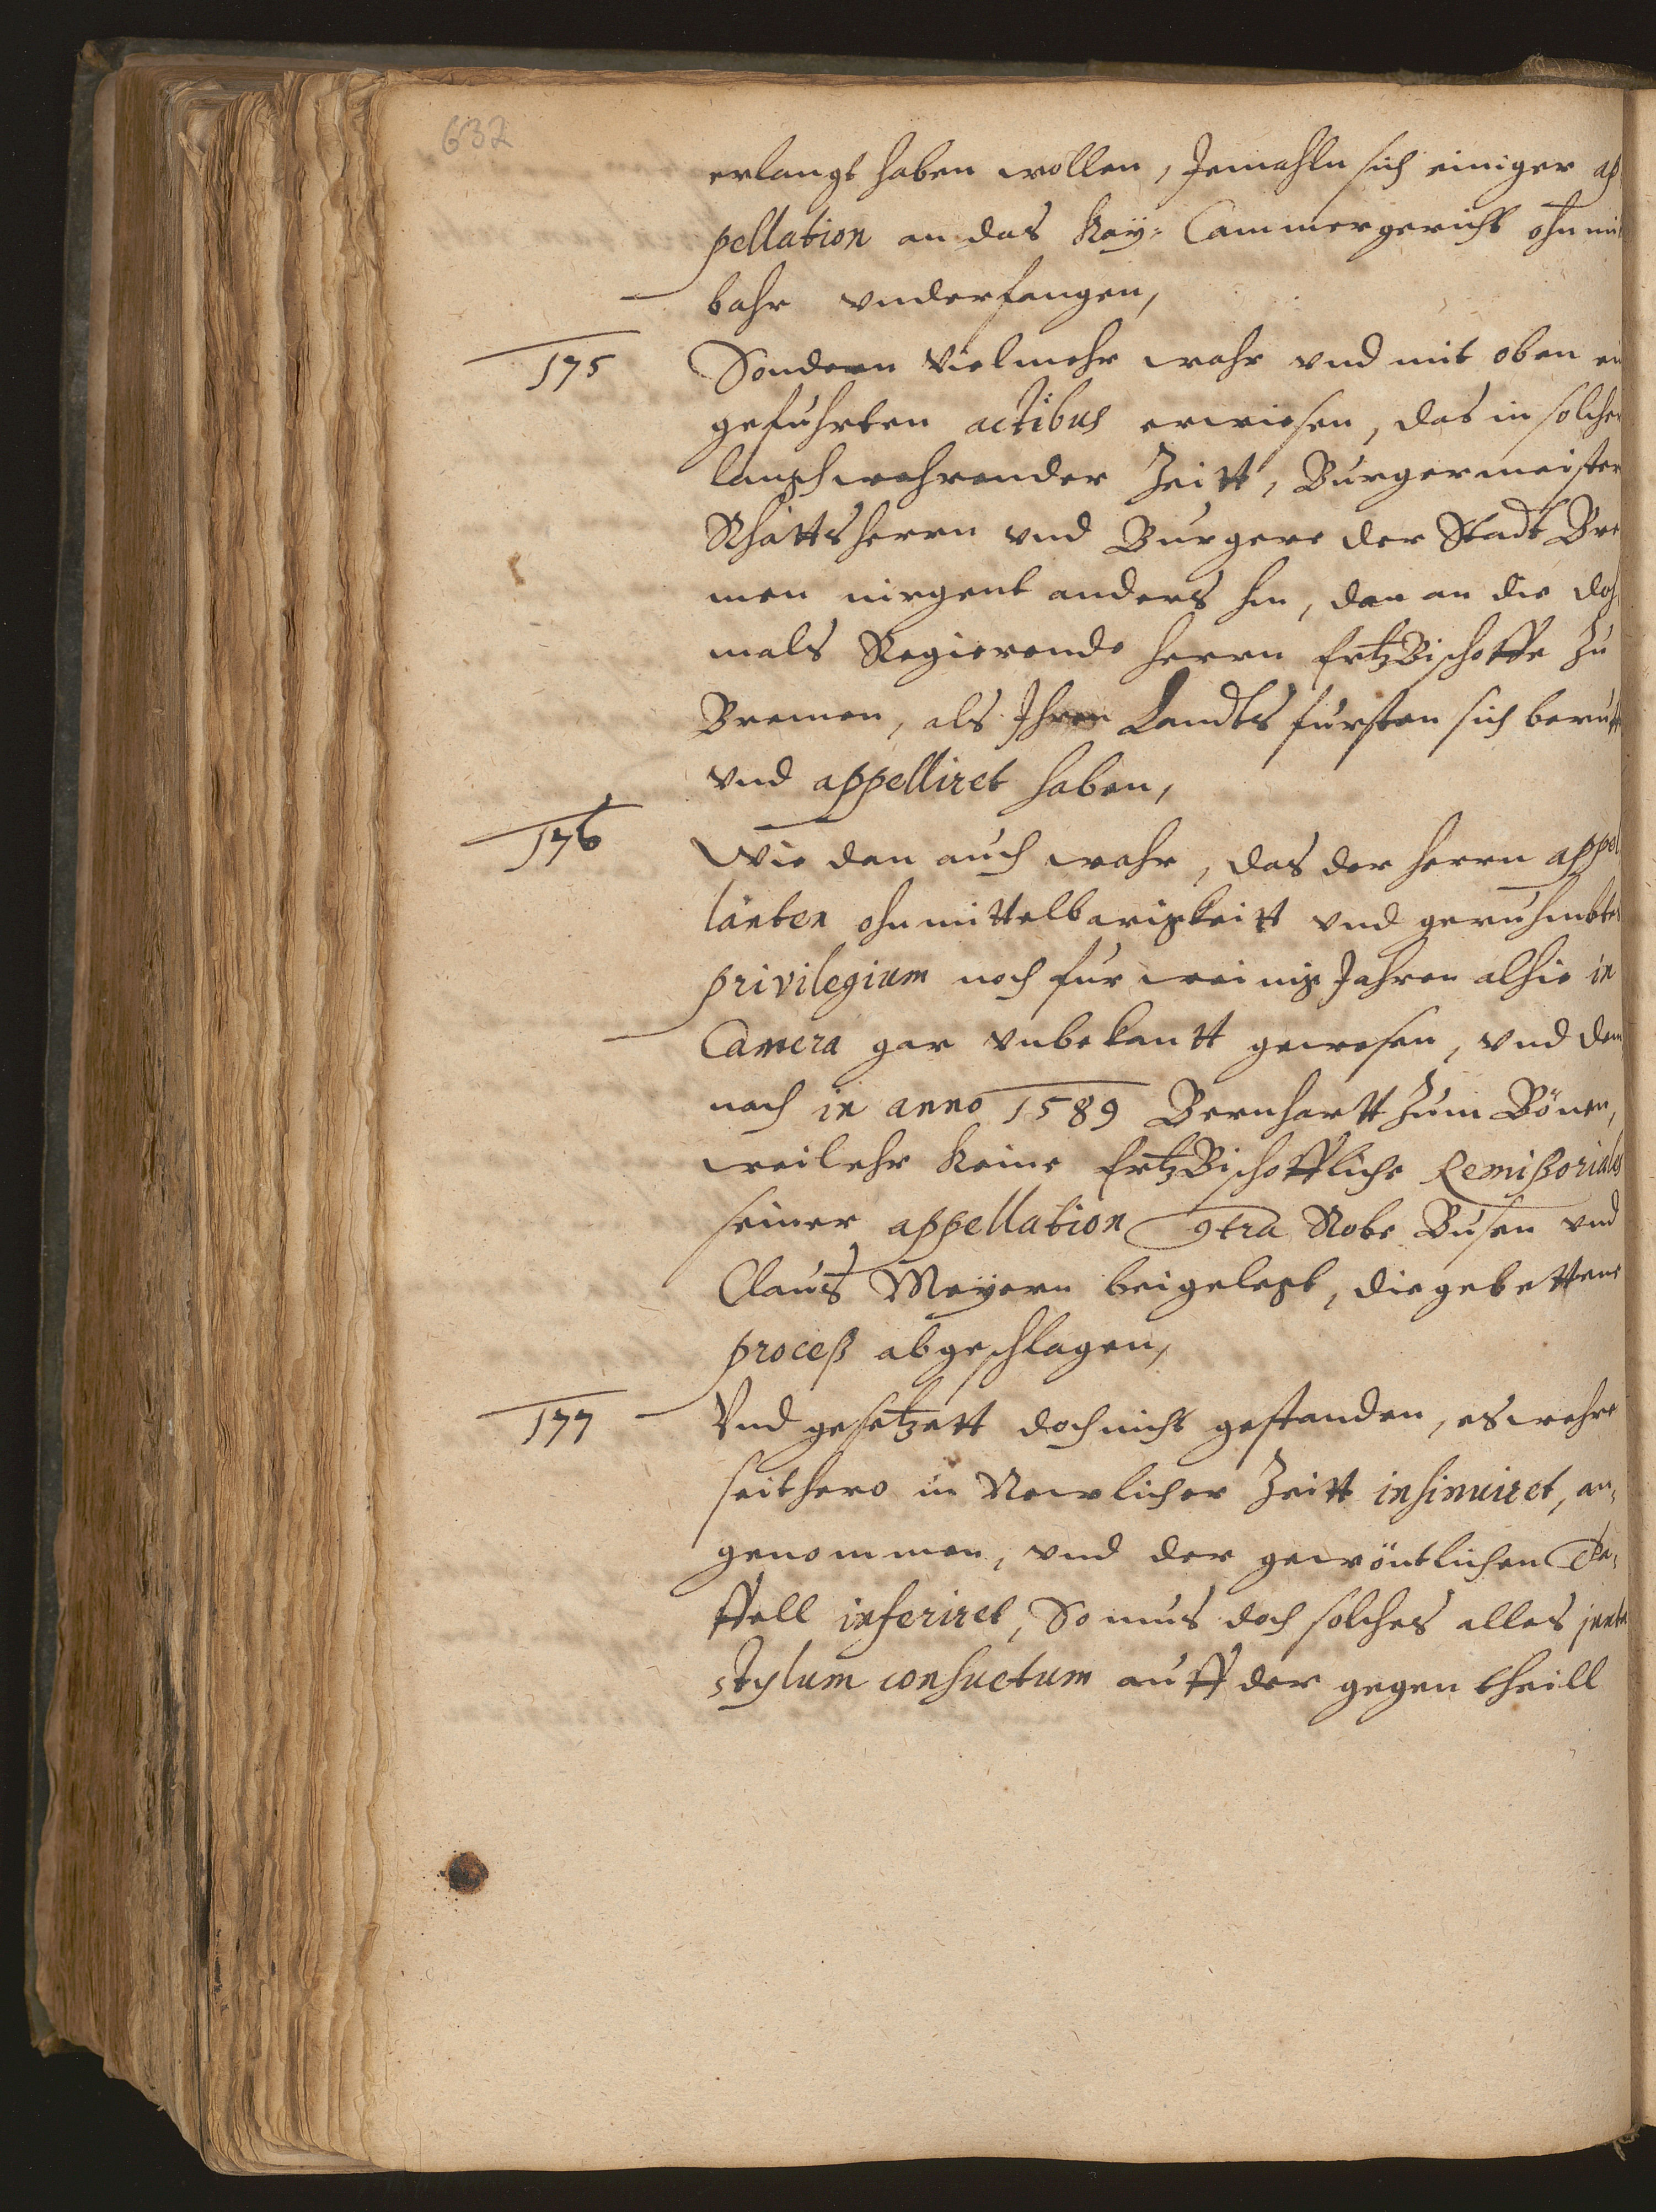 632
erlangt haben wollen, Jemahln sich einiger ap
pellation an das Kay: Cammergericht ohnmit
bahr vnderfangen,
175 Sondern Vielmehr wahr vnd mit oben ein
gefuhrten actibus erwiesen, das in solcher
langhwehrender Zeitt, Burgermeister
Rhattsherrn vnd Burgere der Stadt Bre
men nirgent anders hin, dan an die doh
mals Regierende herrn ErtzBischoffe zu
Bremen, als Ihren Landts fursten sich beruff
vnd appelliret haben,
176 Wie dan auch wahr, das der herrn appel
lanten ohnmittelbarigkeitt vnd geruhmbtes
privilegium noch fur weinig Jahren alhie in
Camera gar vnbekantt gewesen, vnd dem
nach in anno 1589 Bernhartt zum Bönen,
weil ehr keine ErtzBischoffliche Remissoriales
seiner appellation 9tra Robe Busen vnd
Claus Meyern beigelegt, die gebettene
proceß abgeschlagen,
177 Vnd gesetzett doch nicht gestanden, es wehre
seithero in Newlicher Zeitt insinuiret, an,
genommen, vnd der gewöntlichen Ta,
ffell inseriret, So mus doch solches alles juxta
stylum consuetum auff der gegen theill